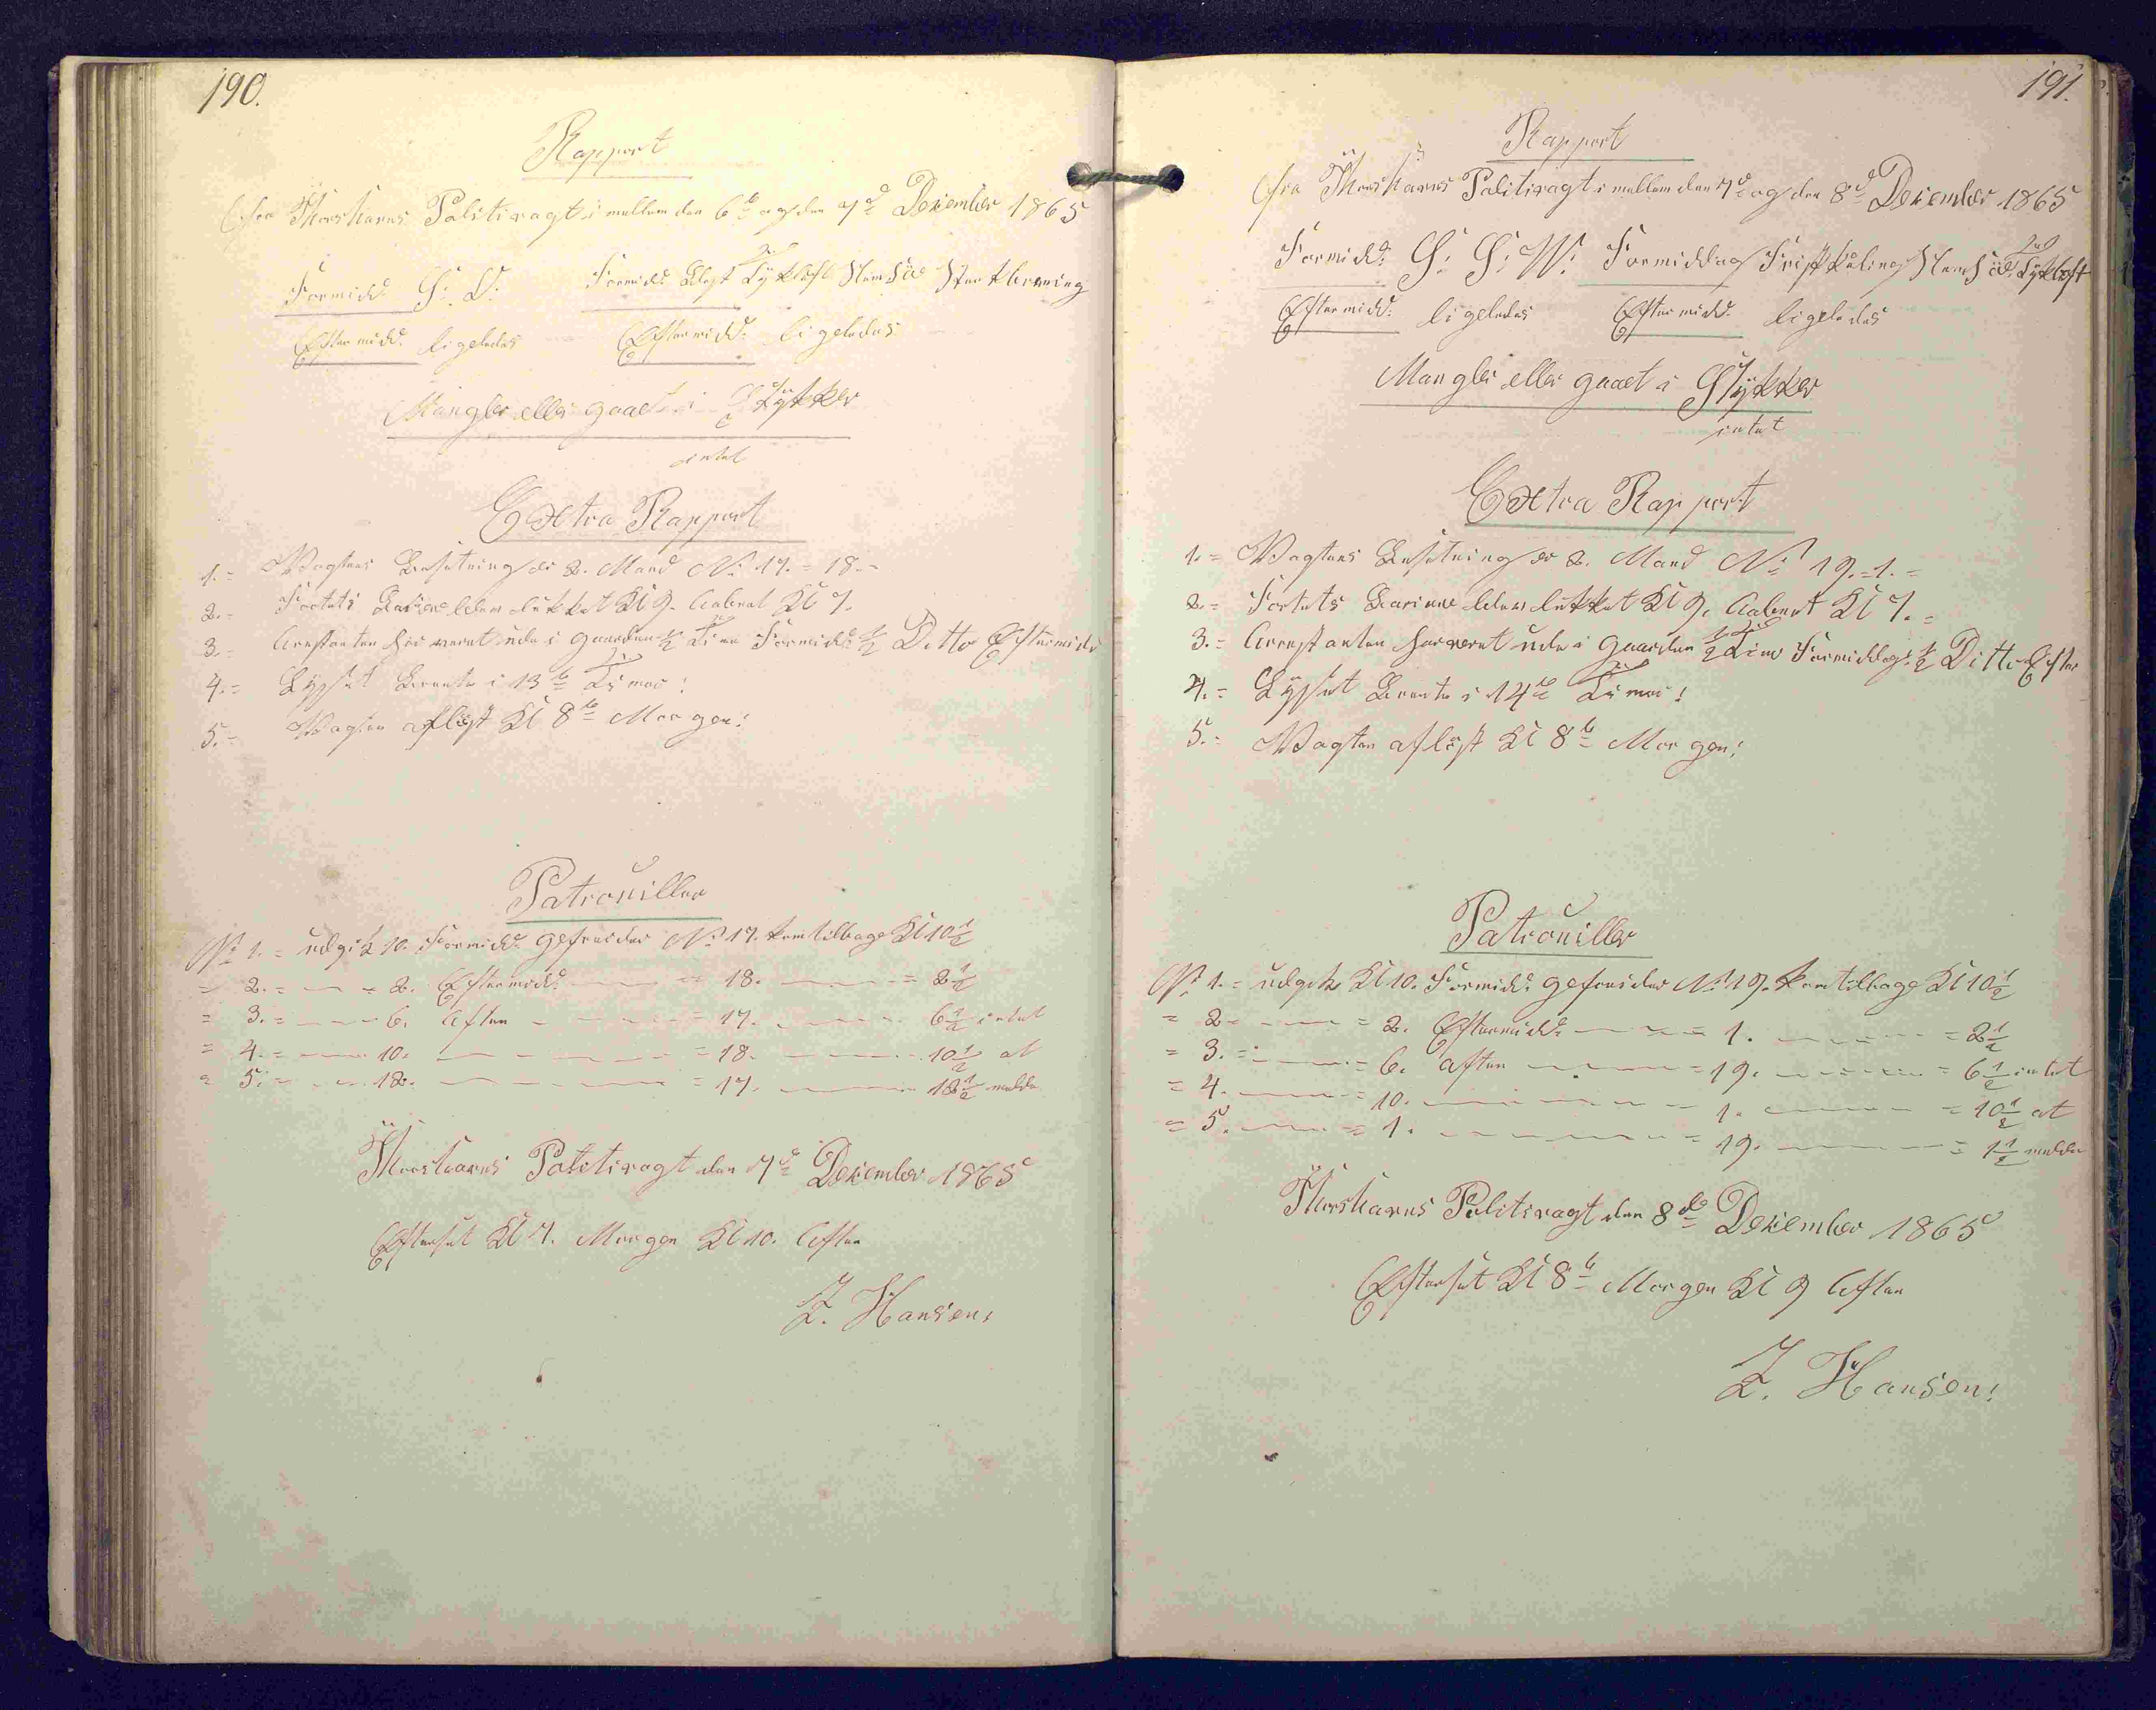 190.
Rapport
fra Thorshavns Politivagt i mellem den 6te og den 7de December 1865
Formidd: S: O: Formidd: Blæst Tykluft Slem Søe Strækbrening
Eftermidd: ligeledes Eftermidd: ligeledes
Mangler eller gaaet i Stykker
intet
Extra Rapport
1.= Vagtens Besætning er 2. Mand No 17. = 18.-
2.= Fortets lukket Kl 9. Aabnet Kl 7.
3.= Arrestanten har været ude i Gaarden ½ Time Formidd: ½ Ditto Eftermidd
4.= Lyset Brændte i 13te Timer!
5.= Vagten afløst Kl 8te Morgen!
Patrouiller
No 1.= udgik 10. Formidd: Gefreider No 17. kom tilbage Kl 10½
= 2.= — = 2. Eftermidd: — = 18. — = 2½
= 3.= — 6. Aften — = 17. — 6½ intet
= 4.= — 10. — = 18. — 10½ at
= 5.= — 12. — = 17. — 12½ melde
Thorshavns Politivagt den 7de December 1865
Efterset Kl 7. Morgen Kl 10. Aften
Z. Hansen.
191.
Rapport
fra Thorshavns Politivagt i mellem den 7de og den 8de December 1865
Formidd: S: S: W: Formiddag Frisk Kuling Slem Søe Tykluft
Eftermidd: ligeledes Eftermidd: ligeledes
Mangler eller gaaet i Stykker
intet
Extra Rapport
1.= Vagtens Besætning er 2. Mand No 19.=1.=
2.= Fortets lukket Kl 9. Aabnet Kl 7.=
3.= Arrestanten har været ude i Gaarden ½ Time Formiddag: ½ Ditto Efter
4.= Lyset Brændte i 14de Timer!
5.= Vagten afløst Kl 8te Morgen!
Patrouiller
No 1.= udgik Kl 10. Formidd: Gefreider No 19. kom tilbage Kl 10½
= 2 — = 2. Eftermidd: — = 1. — = 2½
= 3.= — = 6. Aften — = 19. — = 6½ intet
= 4. — = 10. — 1. — = 10½ at
= 5. — = 1. — = 19. — = 1½ melde
Thorshavns Politivagt den 8de December 1865
Efterset Kl 8te Morgen Kl 9 Aften
Z. Hansen!